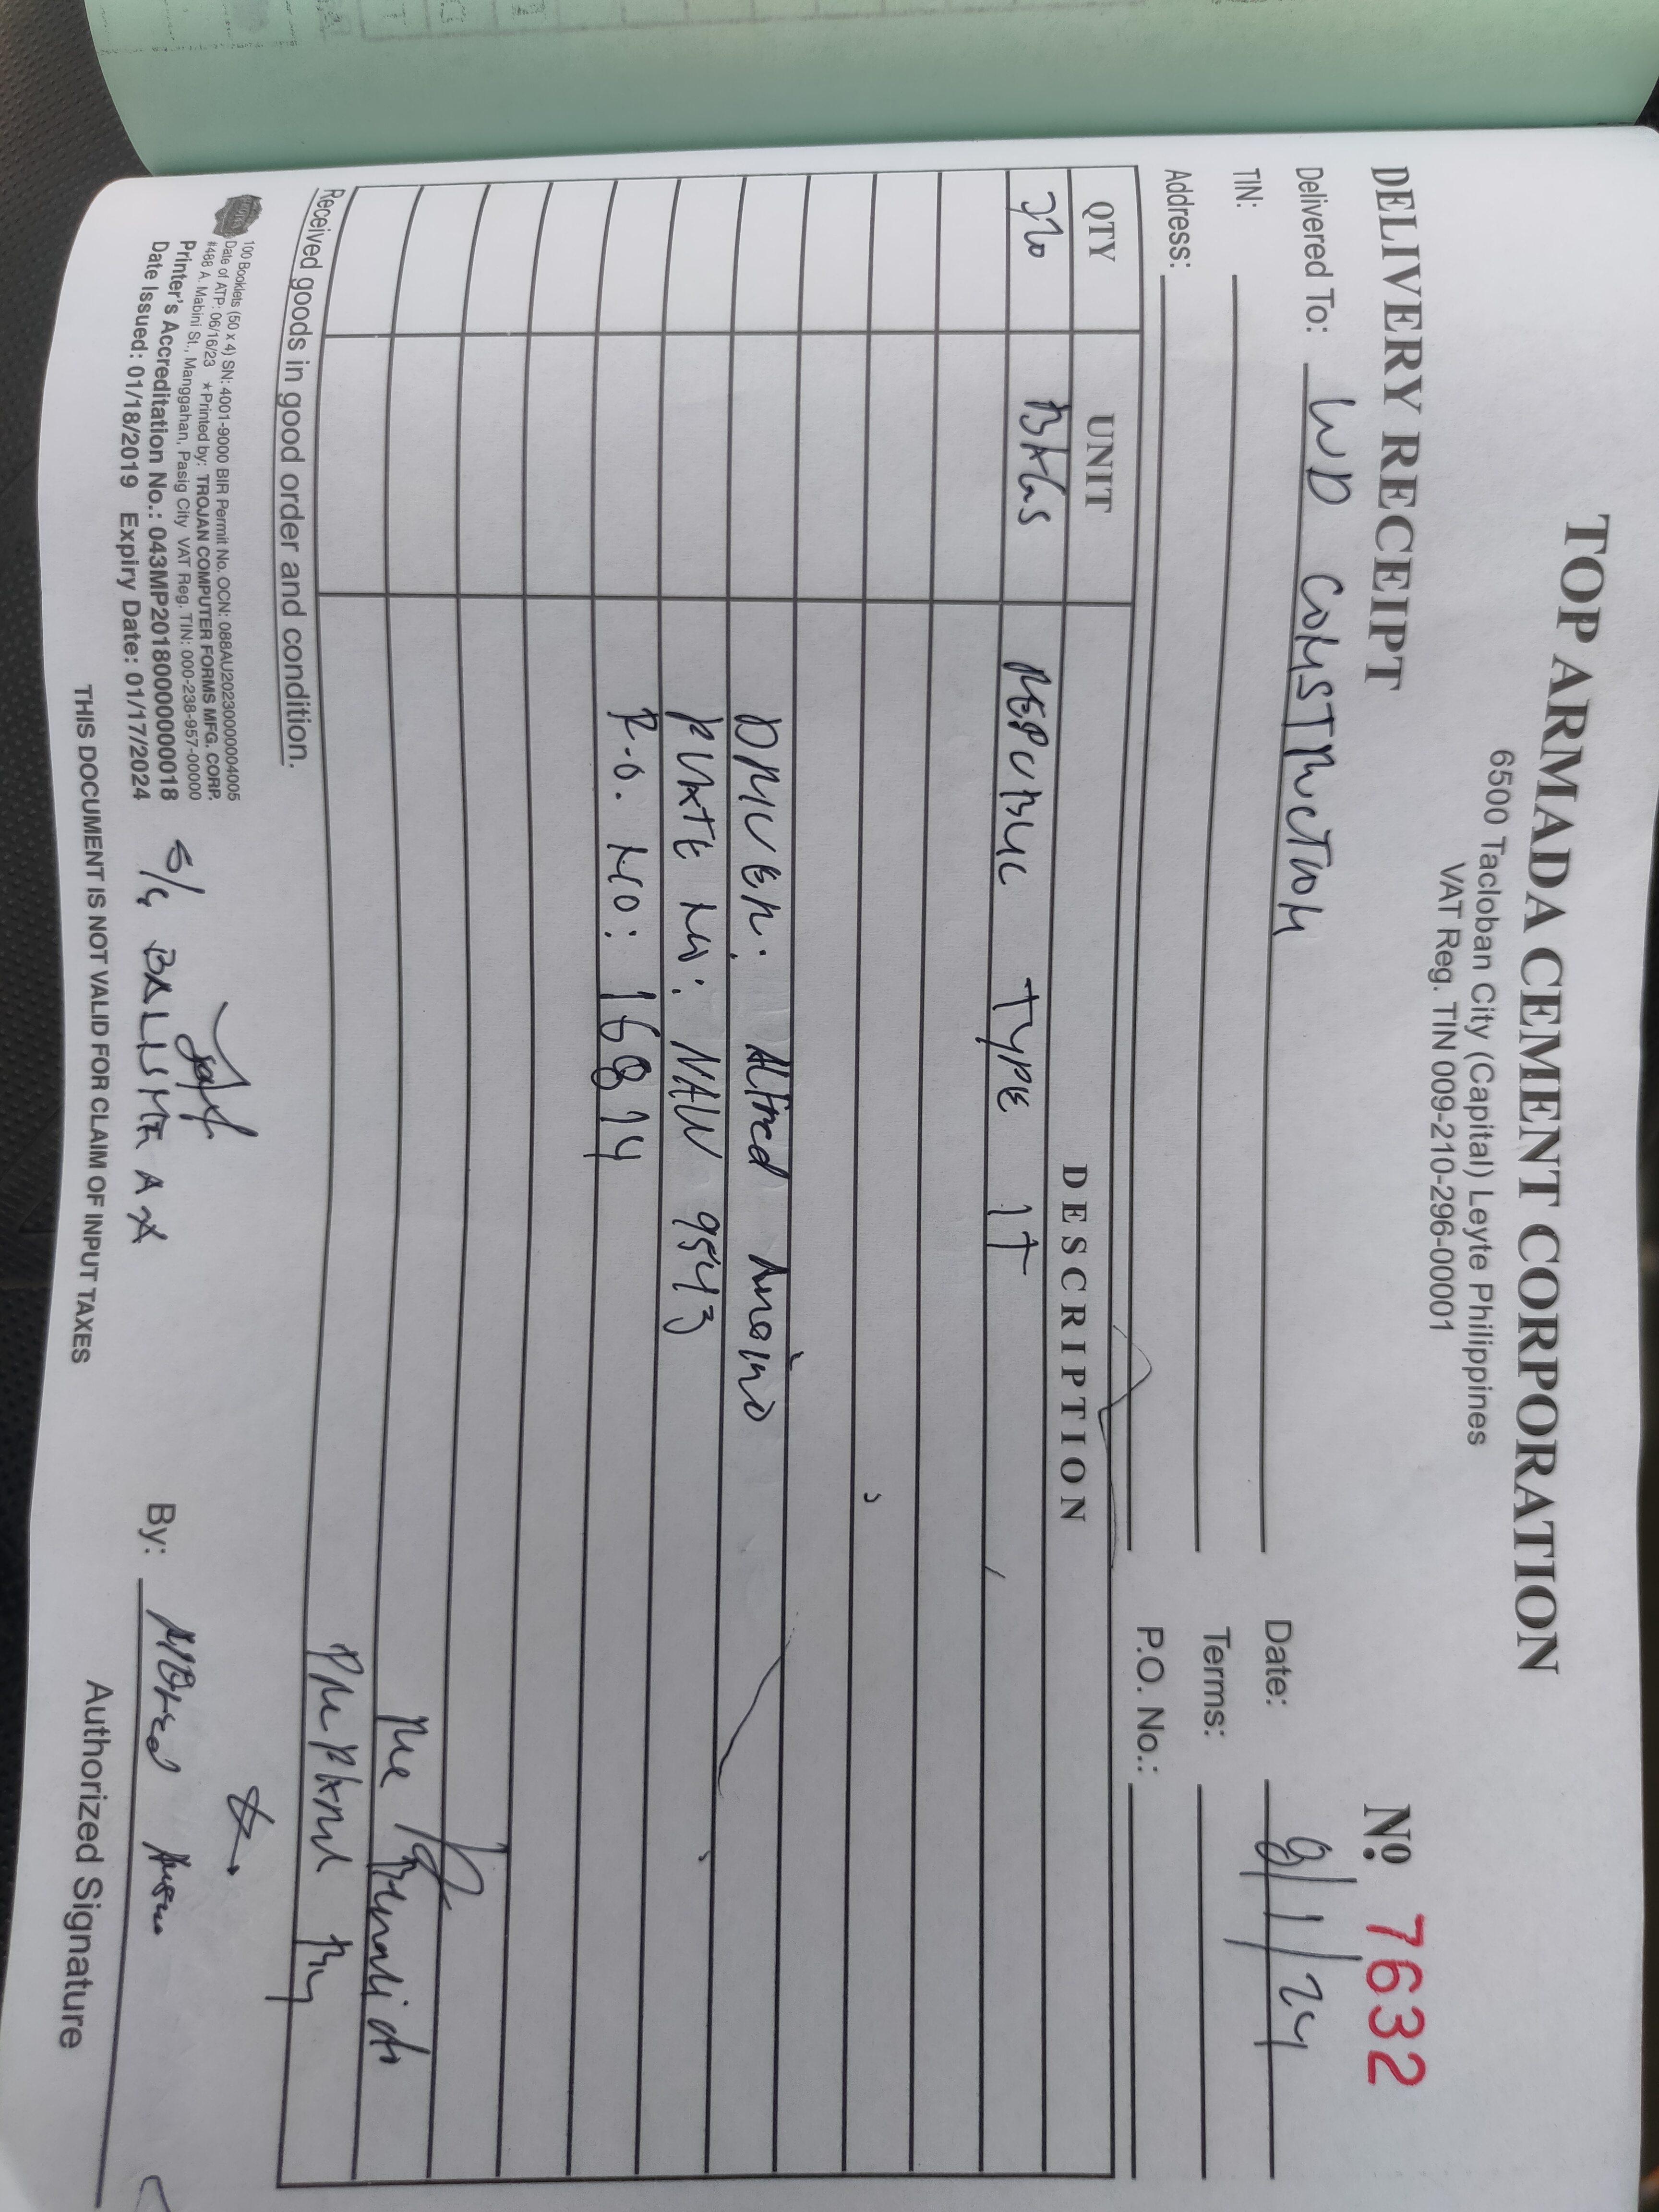 TOP ARMADA CEMENT CORPORATION
6500 Tacloban City (Capital) Leyte Philippines
VAT Reg. TIN 009-210-296-00001
DELIVERY RECEIPT
Nº 7632
Delivered To: WD CONSTRUCTION
Date: 9/1/24
TIN:
Terms:
Address:
P.O. No.:
QTY UNIT DESCRIPTION
320 BAGS REPUBLIC TYPE 1T
DRIVER: Alfred
PLATE NO: NAW 9543
P.O. NO: 16814
PREPARED By
Received goods in good order and condition.
100 Booklets (50 x 4) SN: 4001-9000 BIR Permit No. OCN: 088AU20230000004005
Date of ATP: 06/16/23 ★Printed by: TROJAN COMPUTER FORMS MFG. CORP.
#488 A. Mabini St., Manggahan, Pasig City VAT Reg. TIN: 000-238-957-00000
Printer's Accreditation No.: 043MP20180000000018
Date Issued: 01/18/2019 Expiry Date: 01/17/2024
S/G
By: Alfred
Authorized Signature
THIS DOCUMENT IS NOT VALID FOR CLAIM OF INPUT TAXES